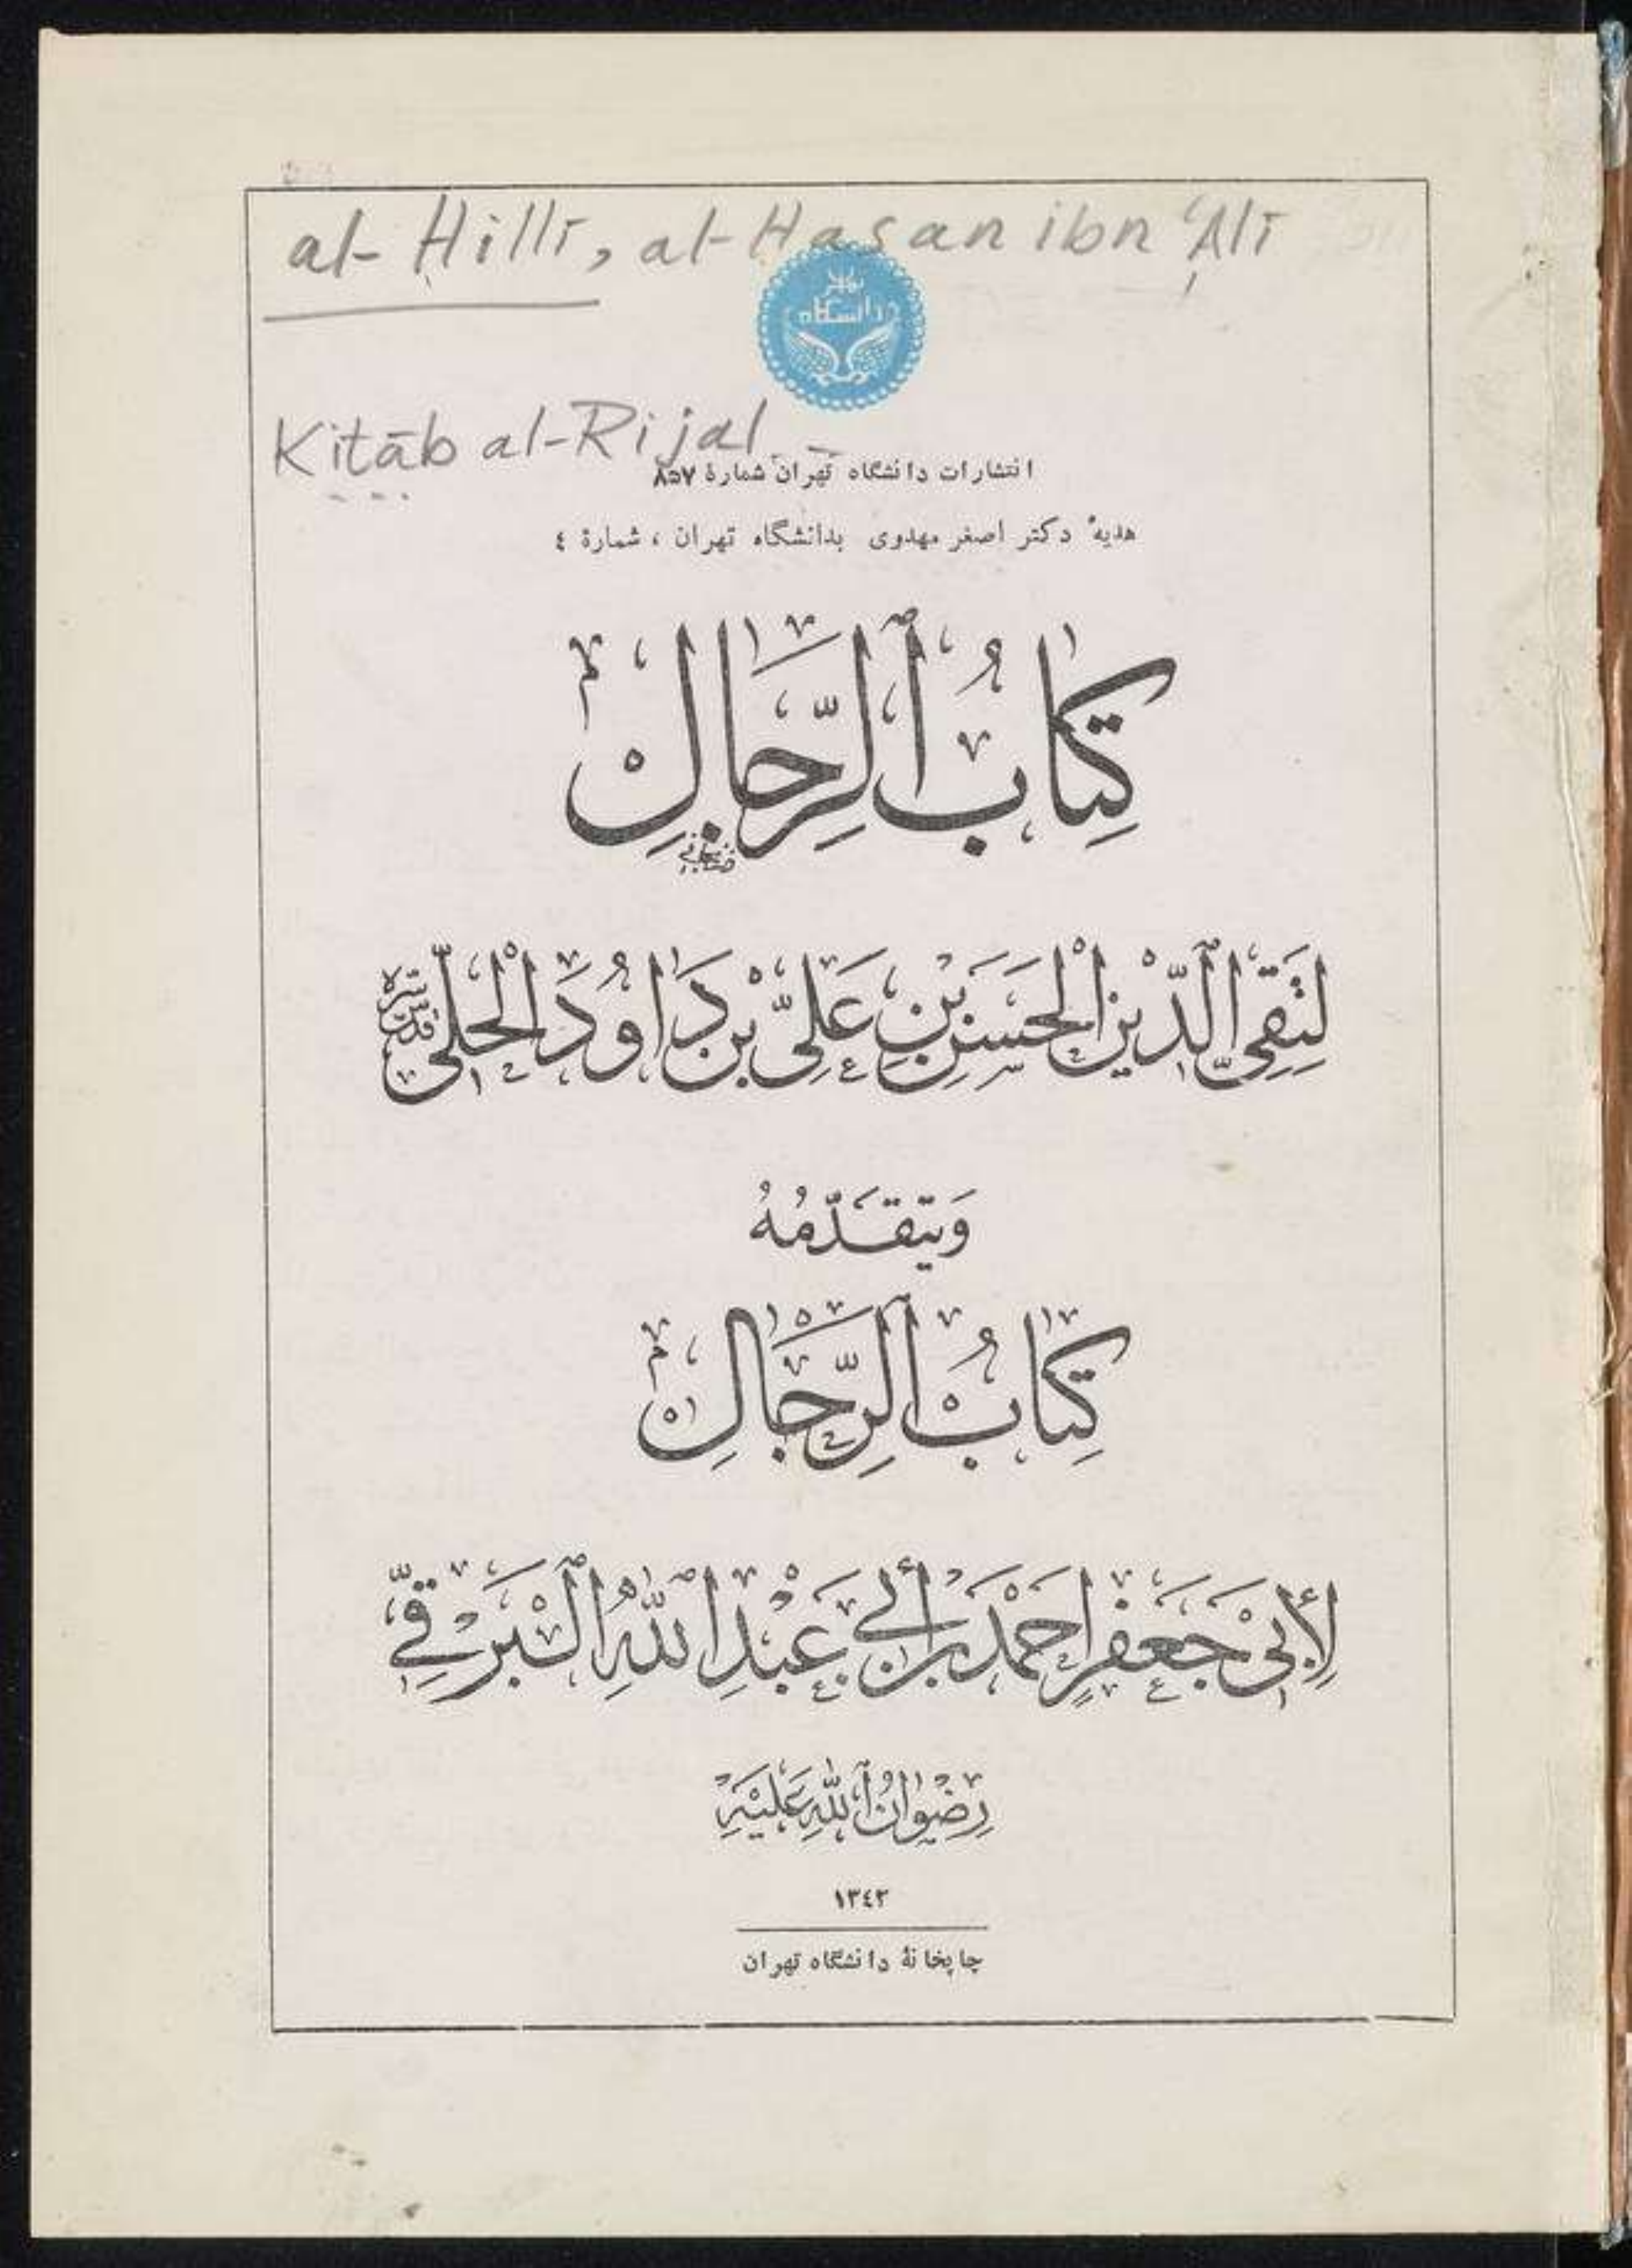 al-Ḥillī, al-Ḥasan ibn ʿAlī
تهران
دانشگاه
Kitāb al-Rijal
انتشارات دانشگاه تهران شمارهٔ ۸۵۷
هدیهٔ دکتر اصغر مهدوی بدانشگاه تهران ، شمارهٔ ٤
كِتَابُ ٱلرِّجَالِ
لِتَقِىِّ ٱلدِّيْنِ الْحَسَنِ بْنِ عَلِىِّ بْنِ دَاوُدَ الْحِلِّىِّ قدّس سرّه
وَيَتَقَدَّمُهُ
كِتَابُ ٱلرِّجَالِ
لِأَبِىْ جَعْفَرٍ أَحْمَدَ بْنِ أَبِى عَبْدِ ٱللهِ ٱلْبَرْقِىِّ
رِضْوَانُ ٱللهِ عَلَيْهِ
۱۳٤۲
چاپخانهٔ دانشگاه تهران